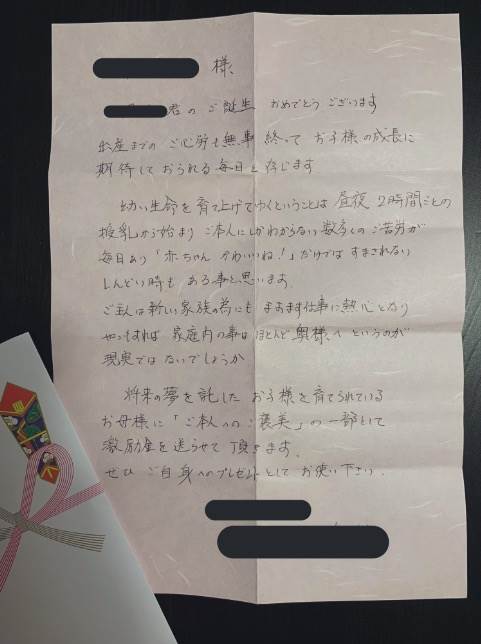 様
君のご誕生 おめでとうございます
出産までのご心労も無事終って お子様の成長に
期待しておられる毎日と存じます
幼い生命を育て上げてゆくということは 昼夜2時間ごとの
授乳から始まり ご本人にしかわからない数多くのご苦労が
毎日あり「赤ちゃん かわいいね!」だけではすまされない
しんどい時も ある事と思います
ご主人は新しい家族の為にも ますます仕事に熱心となり
やゝもすれば 家庭内の事はほとんど奥様へ というのが
現実ではないでしょうか
将来の夢を託した お子様を育てられている
お母様に「ご本人へのご褒美」の一部として
激励金を送らせて頂きます.
ぜひ ご自身へのプレゼントとして お使い下さい.